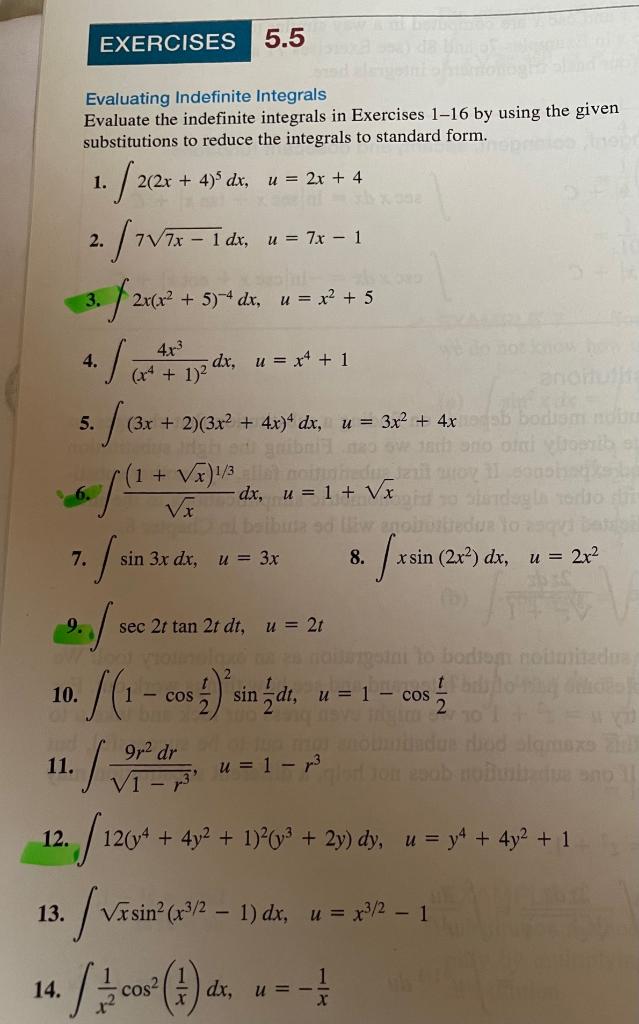 EXERCISES 5.5
Evaluating Indefinite Integrals
Evaluate the indefinite integrals in Exercises 1–16 by using the given
substitutions to reduce the integrals to standard form.
1. ∫ 2(2x + 4)⁵ dx, u = 2x + 4
2. ∫ 7√(7x − 1) dx, u = 7x − 1
3. ∫ 2x(x² + 5)⁻⁴ dx, u = x² + 5
4. ∫ 4x³/(x⁴ + 1)² dx, u = x⁴ + 1
5. ∫ (3x + 2)(3x² + 4x)⁴ dx, u = 3x² + 4x
6. ∫ (1 + √x)^(1/3)/√x dx, u = 1 + √x
7. ∫ sin 3x dx, u = 3x 8. ∫ x sin (2x²) dx, u = 2x²
9. ∫ sec 2t tan 2t dt, u = 2t
10. ∫ (1 − cos t/2)² sin t/2 dt, u = 1 − cos t/2
11. ∫ 9r² dr/√(1 − r³), u = 1 − r³
12. ∫ 12(y⁴ + 4y² + 1)²(y³ + 2y) dy, u = y⁴ + 4y² + 1
13. ∫ √x sin² (x^(3/2) − 1) dx, u = x^(3/2) − 1
14. ∫ 1/x² cos² (1/x) dx, u = −1/x